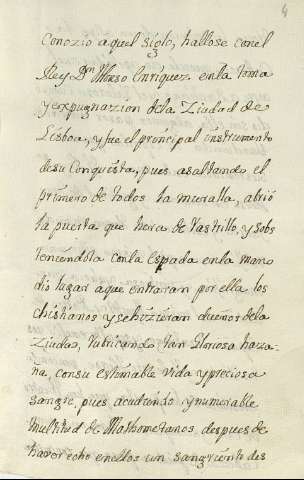 4
Conozio aquel siglo, hallose con el
Rey Dn Alonso Enriquez en la toma
y expugnazion de la Ziudad de
Lisboa, y fue el principal instrumento
de su Conquista, pues asaltando el
primero de todos la muralla, abrió
la puerta que hera de rastrillo, y sobs
teniendola con la espada en la mano
dio lugar a que entraran por ella los
christianos y se hizieran dueños de la
Ziudad, rubricando tan Gloriosa haza
ña, con su estimable vida y preciosa
sangre, pues acudiendo ynumerable
multitud de Mathometanos despues de
haver echo en ellos un sangriento des